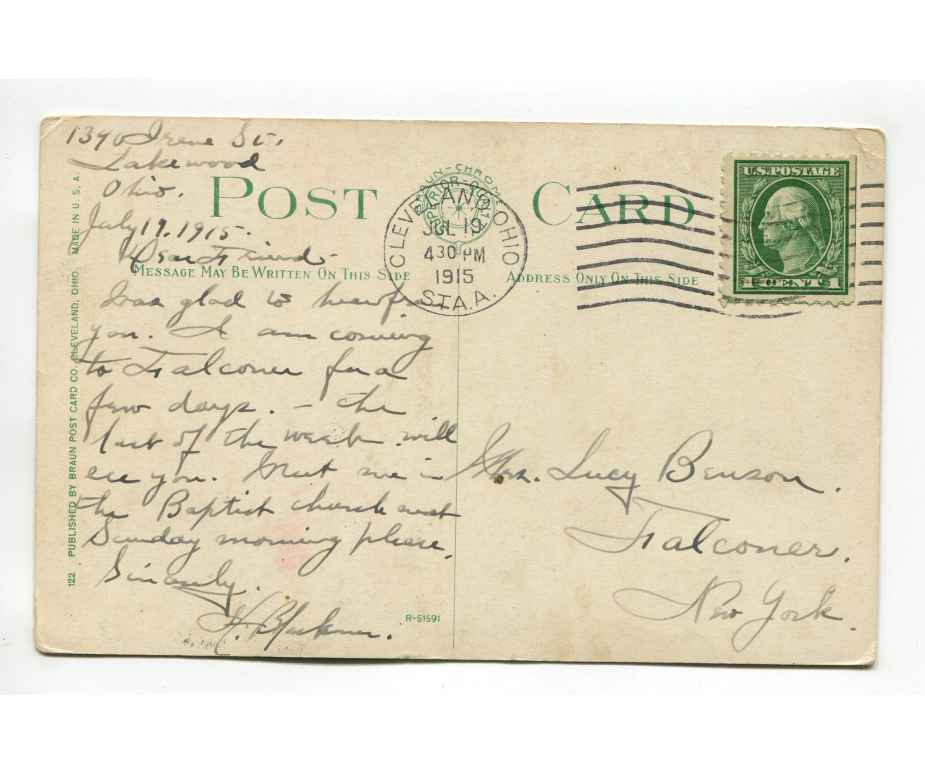 1390 Irene St.
Lakewood
Ohio.
July 19. 1915.
Dear Friend
I was glad to hear from
you. I am coming
to Falconer for a
few days. – the
last of the week will
see you. Meet me in
the Baptist church next
Sunday morning please.
Sincerely.
POST CARD
MESSAGE MAY BE WRITTEN ON THIS SIDE
ADDRESS ONLY ON THIS SIDE
CLEVELAND, OHIO
JUL 19
430 PM
1915
STA. A.
U.S. POSTAGE
1 CENT 1
Mrs. Lucy Benson.
Falconer.
New York.
R-51591
122 PUBLISHED BY BRAUN POST CARD CO., CLEVELAND, OHIO. MADE IN U. S. A.